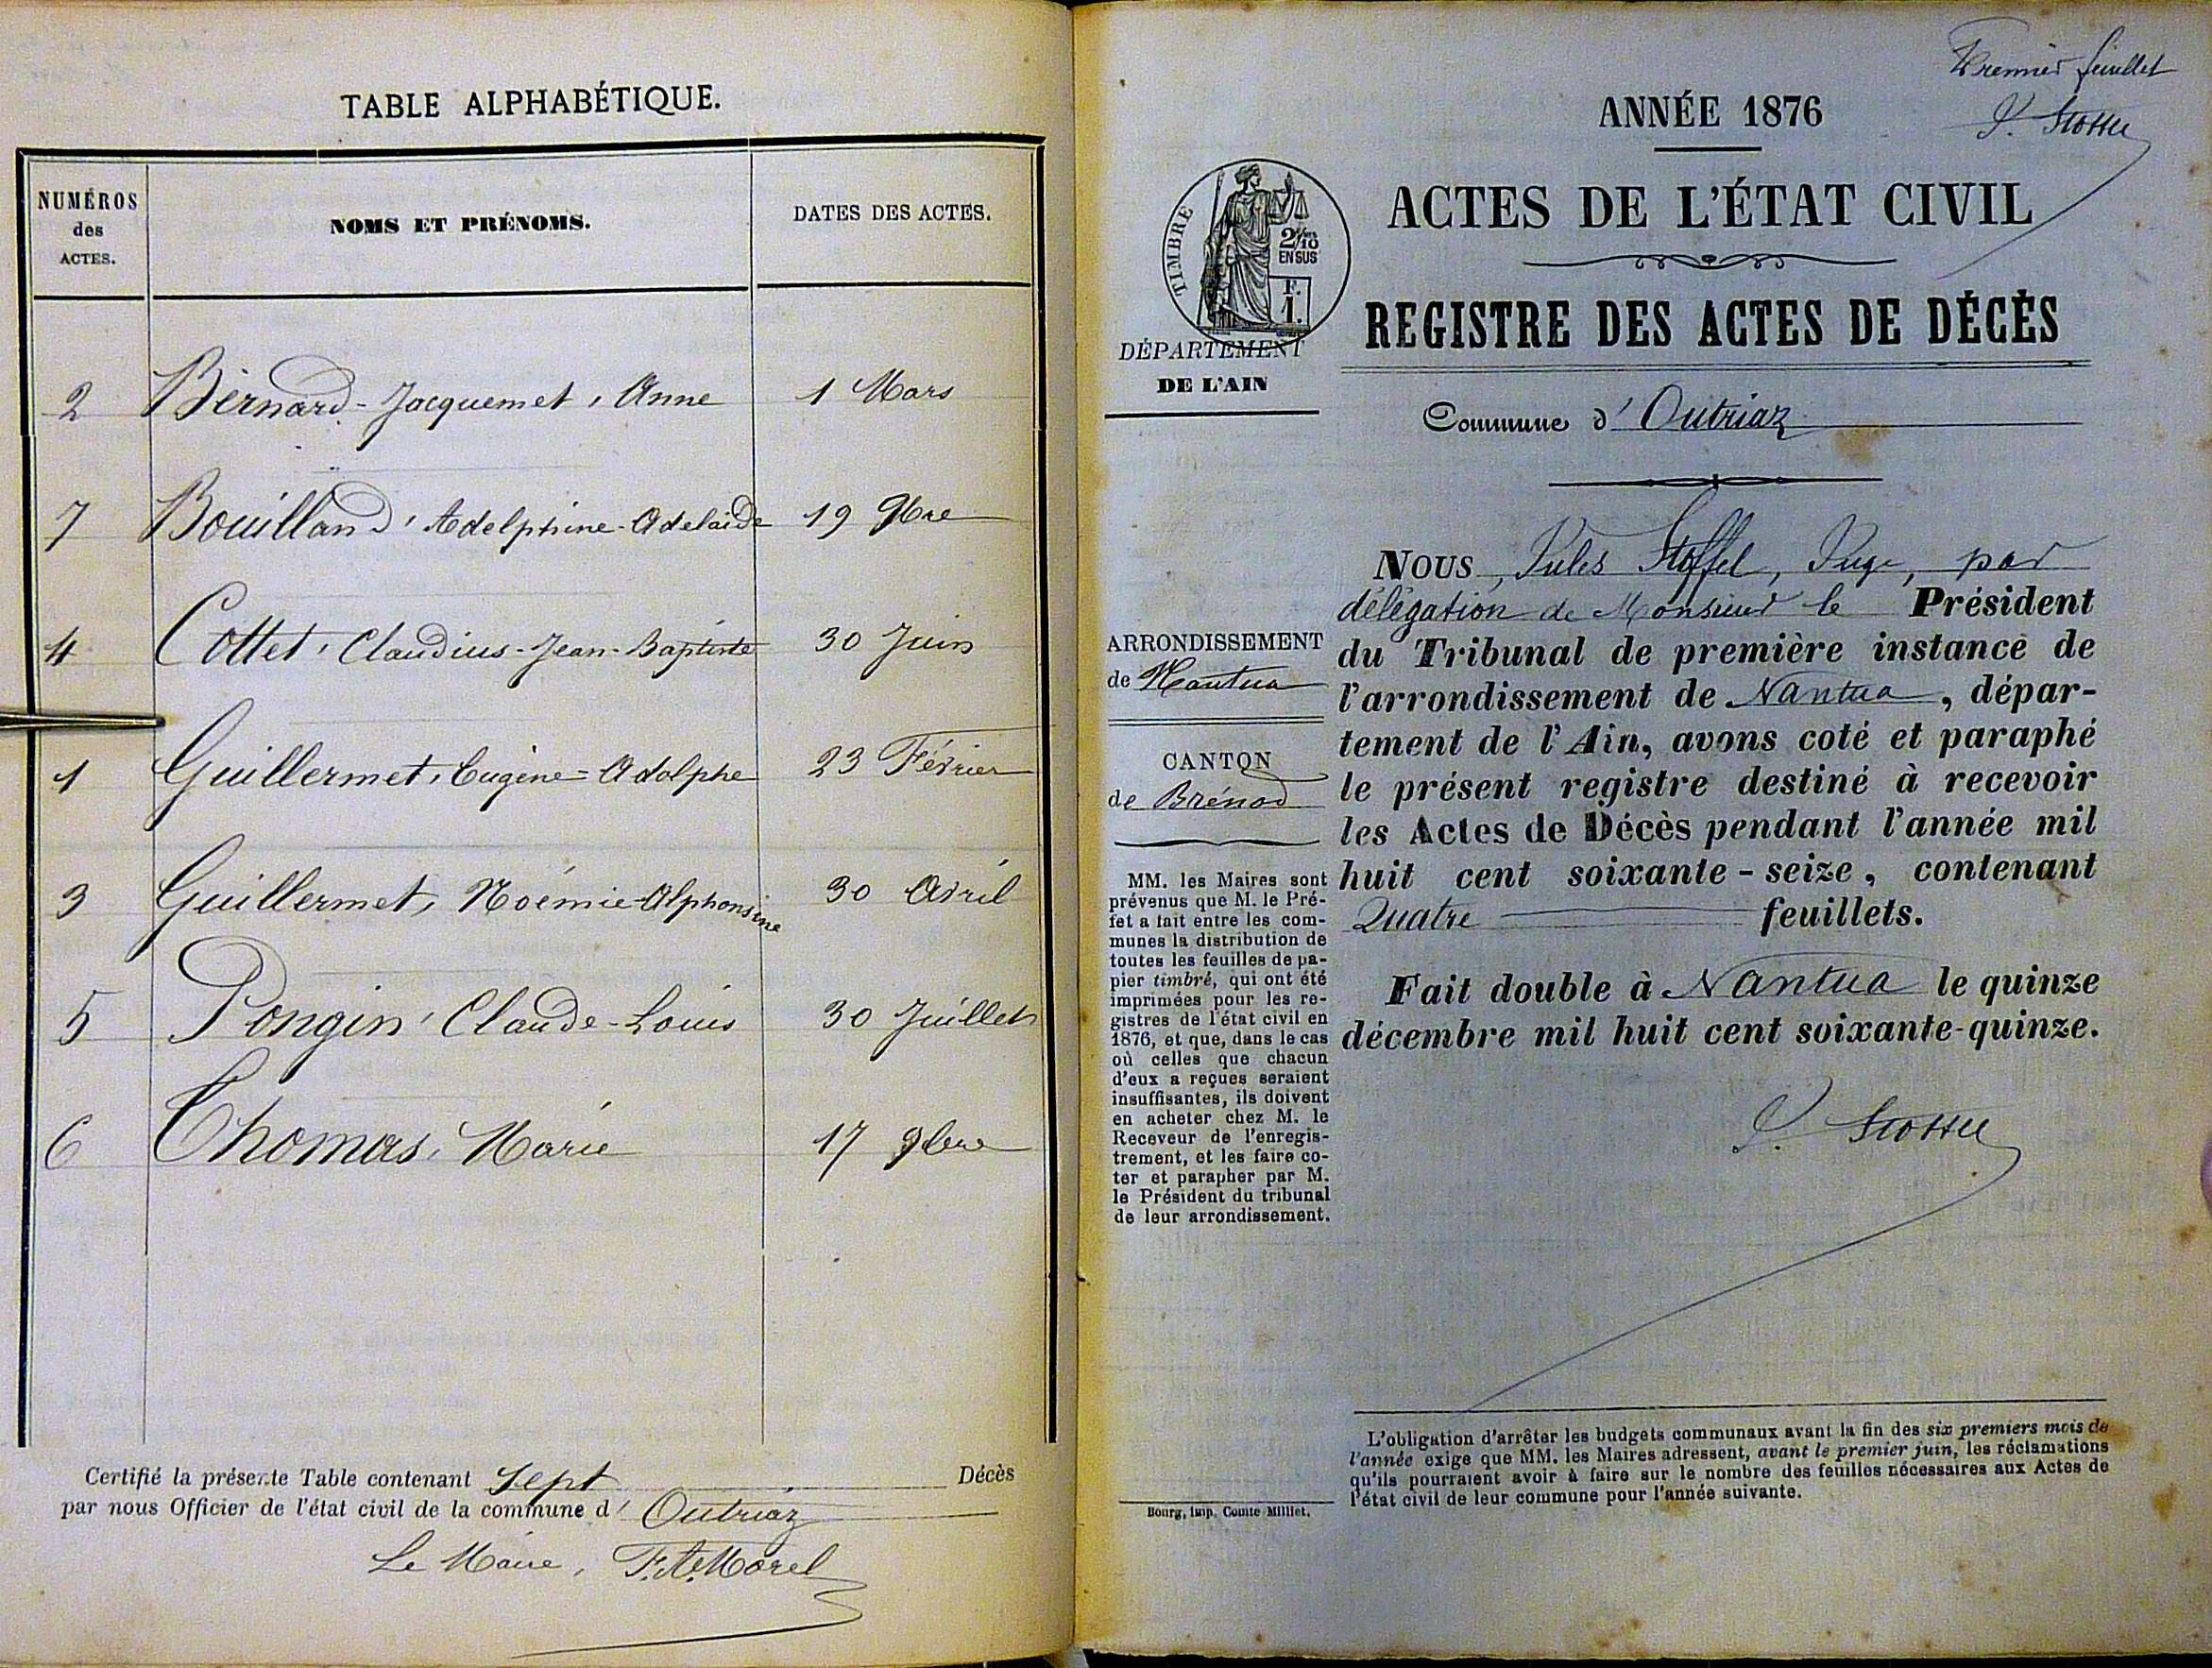 TABLE ALPHABÉTIQUE.
NUMÉROS
des
ACTES.
NOMS ET PRÉNOMS.
DATES DES ACTES.
2 Bernard-Jacquemet, Anne 1 Mars
7 Bouilland, Adelphine-Adelaide 19 9bre
4 Cottet, Claudius-Jean-Baptiste 30 Juin
1 Guillermet, Eugène=Adolphe 23 Février
3 Guillermet, Noémie-Alphonsine 30 Avril
5 Pongin, Claude-Louis 30 Juillet
6 Thomas, Marie 17 9bre
Certifié la présente Table contenant Sept Décès
par nous Officier de l'état civil de la commune d' Outriaz
Le Maire, F. A. Morel
Premier feuillet
J. Stoffel
ANNÉE 1876
ACTES DE L'ÉTAT CIVIL
TIMBRE
2/10
EN SUS
F.
1.
REGISTRE DES ACTES DE DÉCÈS
DÉPARTEMENT
DE L'AIN
Commune d' Outriaz
ARRONDISSEMENT
de Nantua
CANTON
de Brénod
MM. les Maires sont
prévenus que M. le Pré-
fet a fait entre les com-
munes la distribution de
toutes les feuilles de pa-
pier timbré, qui ont été
imprimées pour les re-
gistres de l'état civil en
1876, et que, dans le cas
où celles que chacun
d'eux a reçues seraient
insuffisantes, ils doivent
en acheter chez M. le
Receveur de l'enregis-
trement, et les faire co-
ter et parapher par M.
le Président du tribunal
de leur arrondissement.
Nous, Jules Stoffel, Juge, par
délégation de Monsieur le Président
du Tribunal de première instance de
l'arrondissement de Nantua, dépar-
tement de l'Ain, avons coté et paraphé
le présent registre destiné à recevoir
les Actes de Décès pendant l'année mil
huit cent soixante-seize, contenant
Quatre feuillets.
Fait double à Nantua le quinze
décembre mil huit cent soixante-quinze.
J. Stoffel
L'obligation d'arrêter les budgets communaux avant la fin des six premiers mois de
l'année exige que MM. les Maires adressent, avant le premier juin, les réclamations
qu'ils pourraient avoir à faire sur le nombre des feuilles nécessaires aux Actes de
l'état civil de leur commune pour l'année suivante.
Bourg, imp. Comte-Milliet.